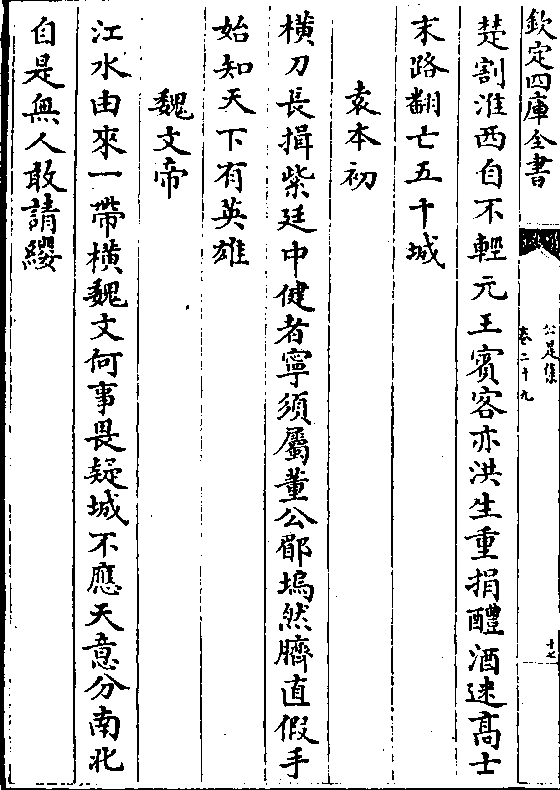 欽定四庫全書
公是集
卷二十九
十七
楚割淮西自不輕元王賓客亦洪生重捐醴酒速髙士
末路翻亡五十城
袁本初
横刀長揖紫廷中健者寧須屬董公郿塢然臍直假手
始知天下有英雄
魏文帝
江水由來一帶横魏文何事畏疑城不應天意分南北
自是無人敢請纓